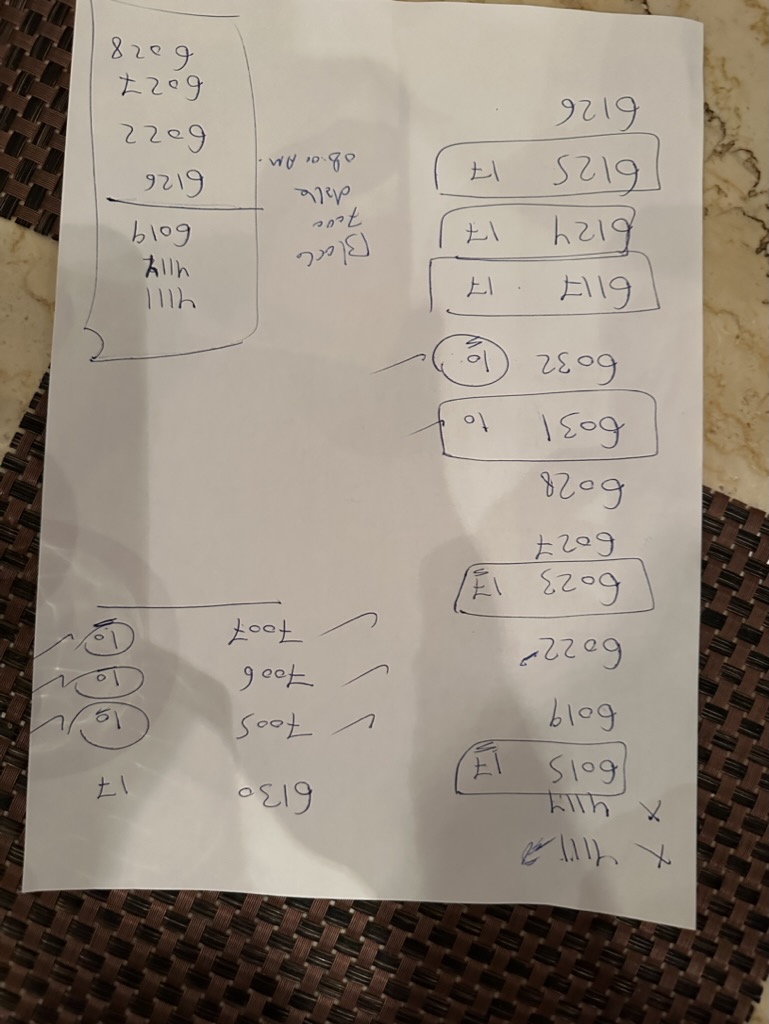 x 4111
x 4117
6015 17
6019
6022
6023 17
6027
6028
6031 10
6032 10
6117 17
6124 17
6125 17
6126
6130 17
✓ 7005 10 ✓
✓ 7006 10 ✓
✓ 7007 10 ✓
Block
7000
08:00 AM.
4111
4117
6019
6126
6022
6027
6028